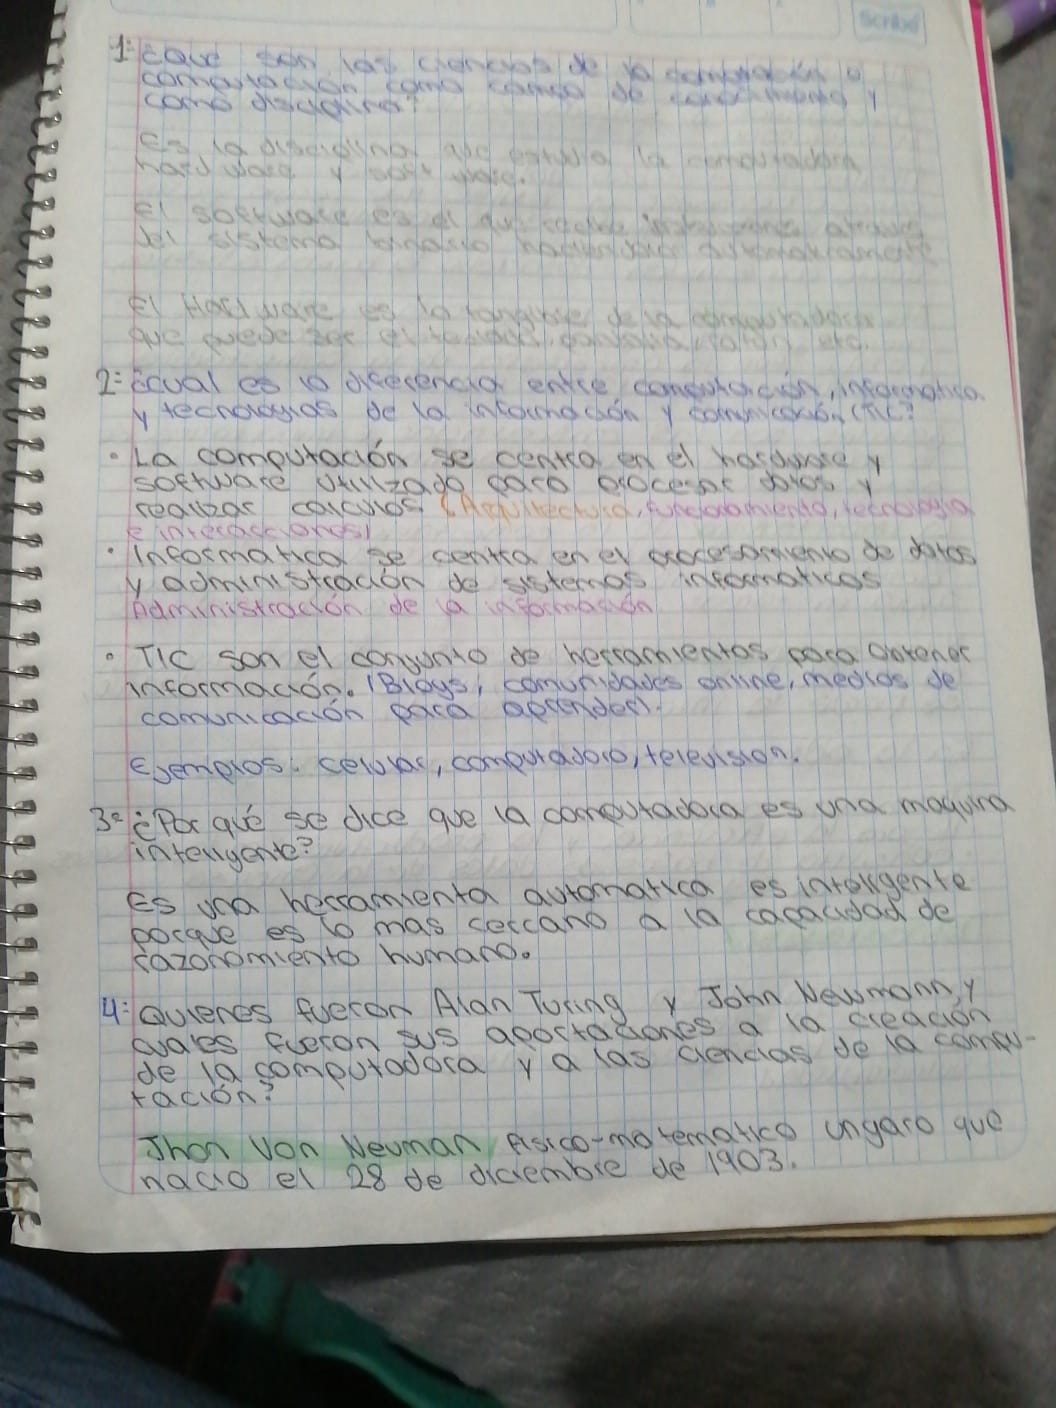 Scribe
1= ¿Que son las ciencias de la computación o
computación como campo de conocimiento y
como disciplina?
Es la disciplina que estudia la computadora
hard ware y soft ware.
El software es el que recibe instrucciones atraves
del sistema binario haciendolo automaticamente
El Hard ware es lo tangible de la computadora
que puede ser el teclado, pantalla, raton, etc.
2= ¿cual es la diferencia entre computación, informatica
y tecnologias de la información y comunicación (TIC?
• La computación se centra en el hardware y
software utilizado para procesar datos y
realizar calculos (Arquitectura, fundamento, tecnologia
e interacciones)
• Informatica se centra en el procesamiento de datos
y administración de sistemas informaticos
Administración de la información
• TIC son el conjunto de herramientas para obtener
información. (Blogs, comunidades online, medios de
comunicación para aprender).
Ejemplos: celular, computadora, television.
3= ¿Por qué se dice que la computadora es una maquina
inteligente?
Es una herramienta automatica es inteligente
porque es lo mas cercano a la capacidad de
razonamiento humano.
4= Quienes fueron Alan Turing y John Newmann, y
cuales fueron sus aportaciones a la creación
de la computadora y a las ciencias de la compu-
tación?
Jhon Von Neuman fisico-matematico ungaro que
nacio el 28 de diciembre de 1903.